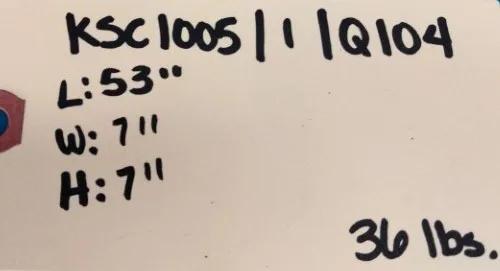 KSC1005/1/Q104
L: 53"
W: 7"
H: 7"
36 lbs.